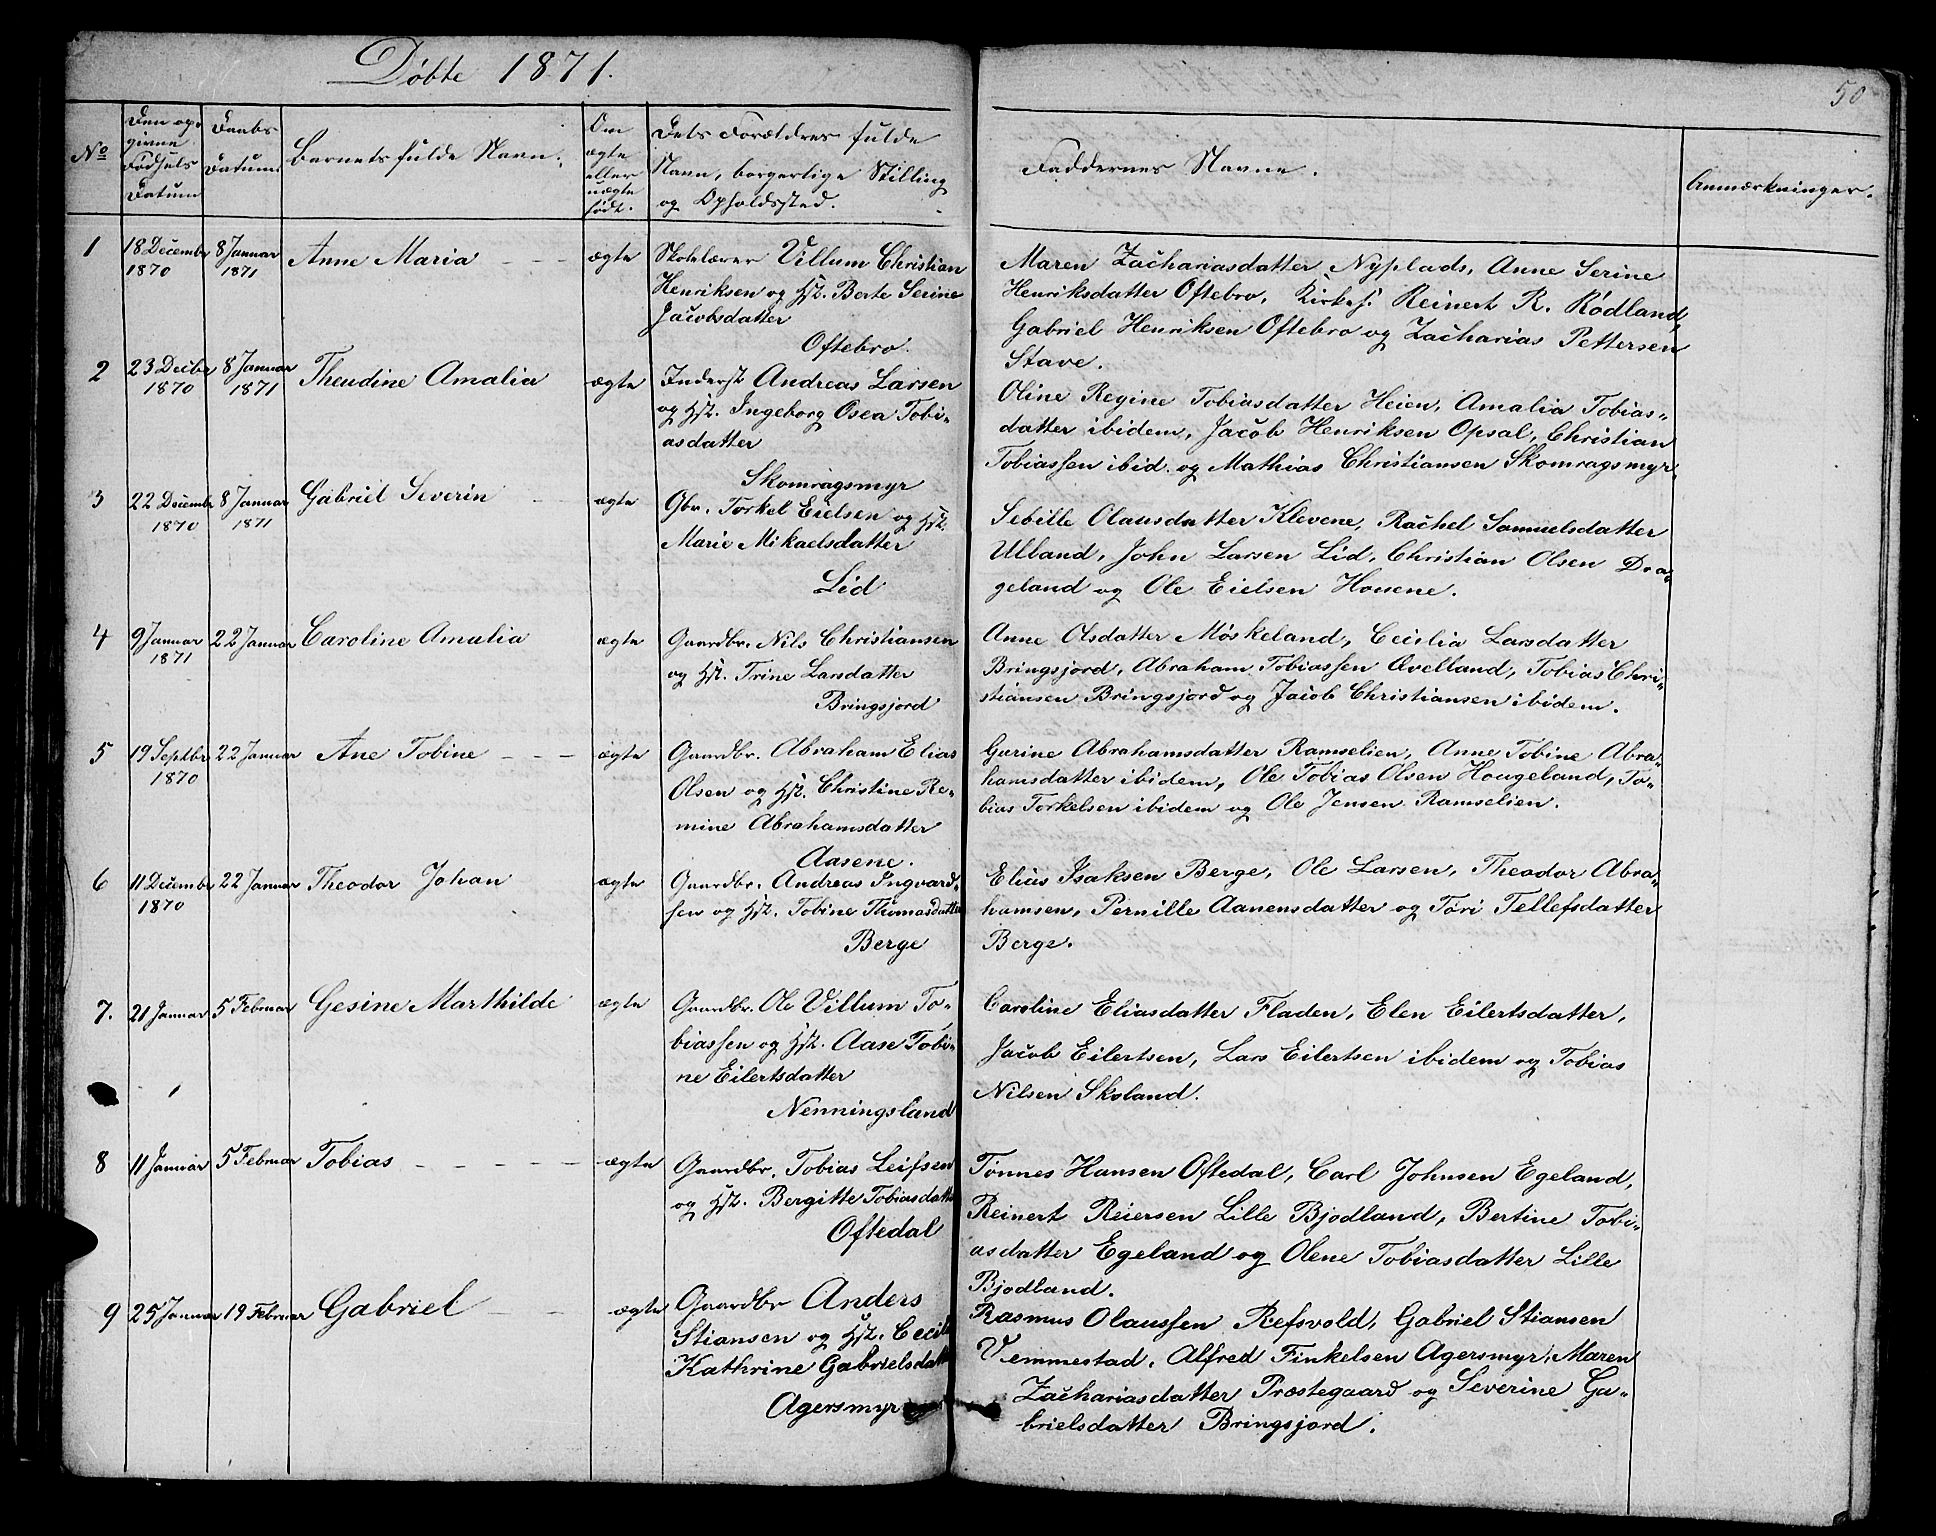 Døbte 1871.
50
No
Den op-
givne
Fødsels
Datum
Daabs
Datum
Barnets fulde Navn.
Om
ægte
eller
uægte
født.
Dets Forældres fulde
Navn, borgerlige Stilling
og Opholdssted.
Faddernes Navne.
Anmærkninger.
1
18 Decembr
1870
8 Januar
1871
Anne Maria
ægte
Skolelærer Villum Christian
Henriksen og Hst. Berte Serine
Jacobsdatter
Oftebro.
Maren Zachariasdatter Nyplads, Anne Serine
Henriksdatter Oftebro, Kirkes. Reinert R. Rødland,
Gabriel Henriksen Oftebro og Zacharias Pettersen
Stave.
2
23 Decbr
1870
8 Januar
1871
Theudine Amalia
ægte
Inderst Andreas Larsen
og Hst. Ingeborg Osea Tobi-
asdatter
Skomragsmyr
Oline Regine Tobiasdatter Heien, Amalia Tobias-
datter ibidem, Jacob Henriksen Opsal, Christian
Tobiassen ibid. og Mathias Christiansen Skomragsmyr.
3
22 Decembr
1870
8 Januar
1871
Gabriel Severin
ægte
Gbr. Torkel Eielsen og Hst.
Marie Mikaelsdatter
Lid
Sebille Olausdatter Klevene, Rachel Samuelsdatter
Ulland, John Larsen Lid, Christian Olsen Dra-
geland og Ole Eielsen Houene.
4
9 Januar
1871
22 Januar
Caroline Amalia
ægte
Gaardbr. Nils Christiansen
og Hst. Trine Larsdatter
Bringsjord
Anne Olsdatter Møskeland, Cecilia Larsdatter
Bringsjord, Abraham Tobiassen Øvelland, Tobias Chri-
stiansen Bringsjord og Jacob Christiansen ibidem.
5
19 Septbr
1870
22 Januar
Ane Tobine
ægte
Gaardbr. Abraham Elias
Olsen og Hst. Christine Re-
mine Abrahamsdatter
Aasene.
Gurine Abrahamsdatter Ramselien, Anne Tobine Abra-
hamsdatter ibidem, Ole Tobias Olsen Hougeland, To-
bias Torkelsen ibidem og Ole Jensen Ramselien.
6
11 Decembr
1870
22 Januar
Theodor Johan
ægte
Gaardbr. Andreas Ingvard-
sen og Hst. Tobine Thomasdatter
Berge
Elias Isaksen Berge, Ole Larsen, Theodor Abra-
hamsen, Pernille Aanensdatter og Tøri Tellefsdatter
Berge.
7.
21 Januar
5 Februar
Gesine Marthilde
ægte
Gaardbr. Ole Villum To-
biassen og Hst. Aase Tobi-
ne Eilertsdatter
Nenningsland
Caroline Eliasdatter Fladen, Elen Eilertsdatter,
Jacob Eilertsen, Lars Eilertsen ibidem og Tobias
Nilsen Skoland.
8
11 Januar
5 Februar
Tobias
ægte
Gaardbr. Tobias Leifsen
og Hst. Bergitte Tobiasdatter
Oftedal
Tønnes Hansen Oftedal, Carl Johnsen Egeland,
Reinert Reiersen Lille Bjodland, Bertine Tobi-
asdatter Egeland og Olene Tobiasdatter Lille
Bjodland.
9
25 Januar
19 Februar
Gabriel
ægte
Gaardbr Anders
Stiansen og Hst. Cecilie
Kathrine Gabrielsdatt
Agersmyr
Rasmus Olaussen Refsvold, Gabriel Stiansen
Vemmestad, Alfred Finkelsen Agersmyr, Maren
Zachariasdatter Præstegaard og Severine Ga-
brielsdatter Bringsjord.